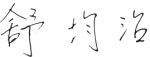 舒均治